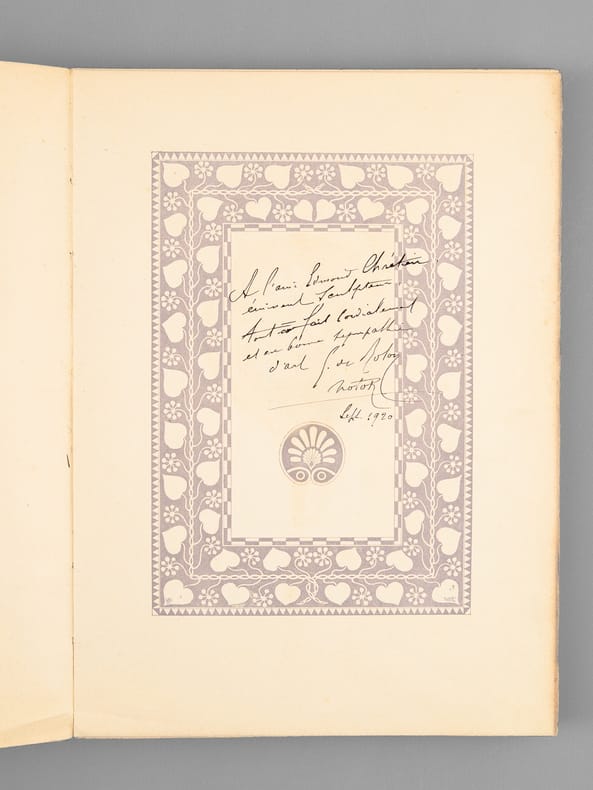 A l'ami Edmond Chrétien,
éminent sculpteur
tout à fait cordialement
et en bonne sympathie
d'art G. de Roton
NOTOR
Sept. 1920